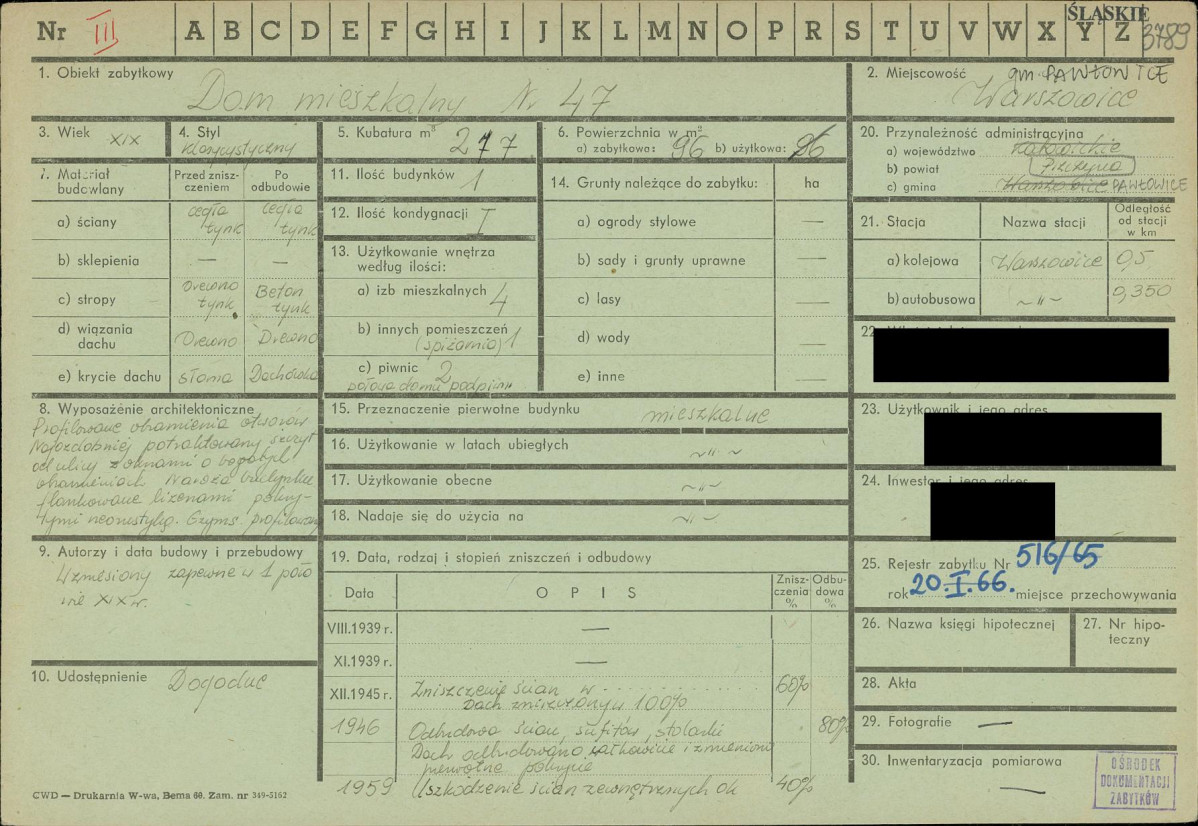 Nr III A B C D E F G H I J K L M N O P R S T U V W X Y Z
ŚLĄSKIE
3789
1. Obiekt zabytkowy
Dom mieszkalny Nr 47
2. Miejscowość gm. PAWŁOWICE
Warszowice
3. Wiek XIX
4. Styl
klasycystyczny
5. Kubatura m³ 277
6. Powierzchnia w m²
a) zabytkowa: 96 b) użytkowa: 86
20. Przynależność administracyjna
a) województwo Katowickie
b) powiat Pszczyna
c) gmina Warszowice PAWŁOWICE
7. Materiał budowlany
Przed zniszczeniem
Po odbudowie
a) ściany cegła tynk cegła tynk
b) sklepienia — —
c) stropy Drewno tynk Beton tynk
d) wiązania dachu Drewno Drewno
e) krycie dachu słoma Dachówka
11. Ilość budynków 1
12. Ilość kondygnacji I
13. Użytkowanie wnętrza
według ilości:
a) izb mieszkalnych 4
b) innych pomieszczeń
(spiżarnia) 1
c) piwnic 2
połowa domu podpiwn
14. Grunty należące do zabytku: ha
a) ogrody stylowe —
b) sady i grunty uprawne —
c) lasy —
d) wody —
e) inne —
21. Stacja Nazwa stacji Odległość od stacji w km
a) kolejowa Warszowice 0,5
b) autobusowa ~ " ~ 0,350
22.
23. Użytkownik i jego adres
24. Inwestor i jego adres
8. Wyposażenie architektoniczne
Profilowane obramienia otworów
Najozdobniej potraktowany szczyt
od ulicy z oknami o bogatych
obramieniach. Naroża budynku
flankowane lizenami pokry-
tymi neorustyką. Gzyms profilowany
15. Przeznaczenie pierwotne budynku mieszkalne
16. Użytkowanie w latach ubiegłych ~ " ~
17. Użytkowanie obecne ~ " ~
18. Nadaje się do użycia na ~ " ~
9. Autorzy i data budowy i przebudowy
Wzniesiony zapewne w 1 poło
wie XIX w.
10. Udostępnienie Dogodne
19. Data, rodzaj i stopień zniszczeń i odbudowy
Data OPIS Zniszczenia % Odbudowa %
VIII.1939 r. —
XI.1939 r. —
XII.1945 r. Zniszczenie ścian w .......... 60%
Dach zniszczony w 100%
1946 Odbudowa ścian, sufitów, stolarki 80%
Dach odbudowano całkowicie i zmieniono
pierwotne pokrycie
1959 Uszkodzenie ścian zewnętrznych ok 40%
25. Rejestr zabytku Nr 516/65
rok 20.I.66. miejsce przechowywania
26. Nazwa księgi hipotecznej
27. Nr hipoteczny
28. Akta
29. Fotografie —
30. Inwentaryzacja pomiarowa
—
OŚRODEK
DOKUMENTACJI
ZABYTKÓW
CWD — Drukarnia W-wa, Bema 60. Zam. nr 349-5162